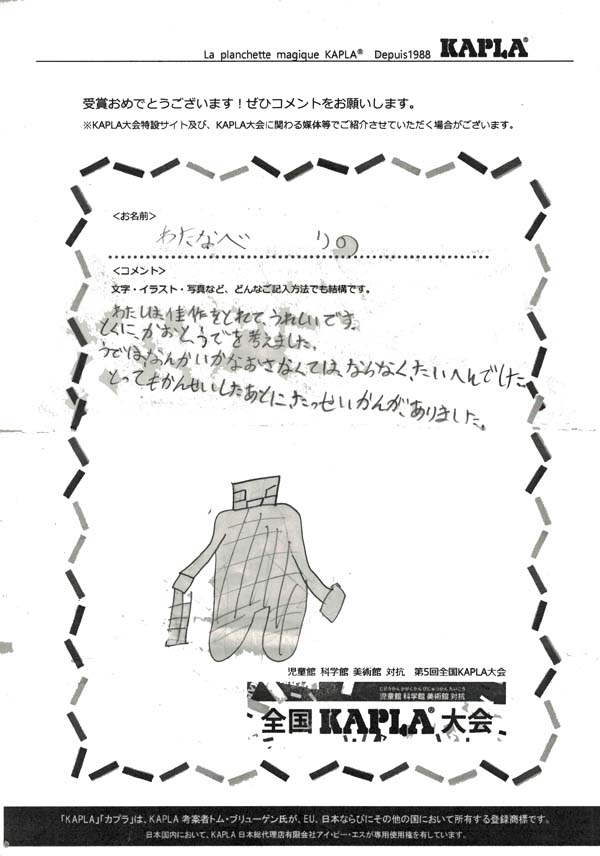 La planchette magique KAPLA® Depuis1988 KAPLA®
受賞おめでとうございます！ぜひコメントをお願いします。
※KAPLA大会特設サイト及び、KAPLA大会に関わる媒体等でご紹介させていただく場合がございます。
＜お名前＞
わたなべ りの
＜コメント＞
文字・イラスト・写真など、どんなご記入方法でも結構です。
わたしは、佳作をとれてうれしいです。
とくに、かおと、うでを考えました。
うでは、なんかいかなおさなくては、ならなく、たいへんでした。
とってもかんせいしたあとに、たっせいかんが、ありました。
児童館 科学館 美術館 対抗 第5回全国KAPLA大会
じどうかん かがくかん びじゅつかん たいこう
児童館 科学館 美術館 対抗
全国KAPLA®大会
「KAPLA」「カプラ」は、KAPLA 考案者トム・ブリューゲン氏が、EU、日本ならびにその他の国において所有する登録商標です。
日本国内において、KAPLA 日本総代理店有限会社アイ・ピー・エスが専用使用権を有しています。